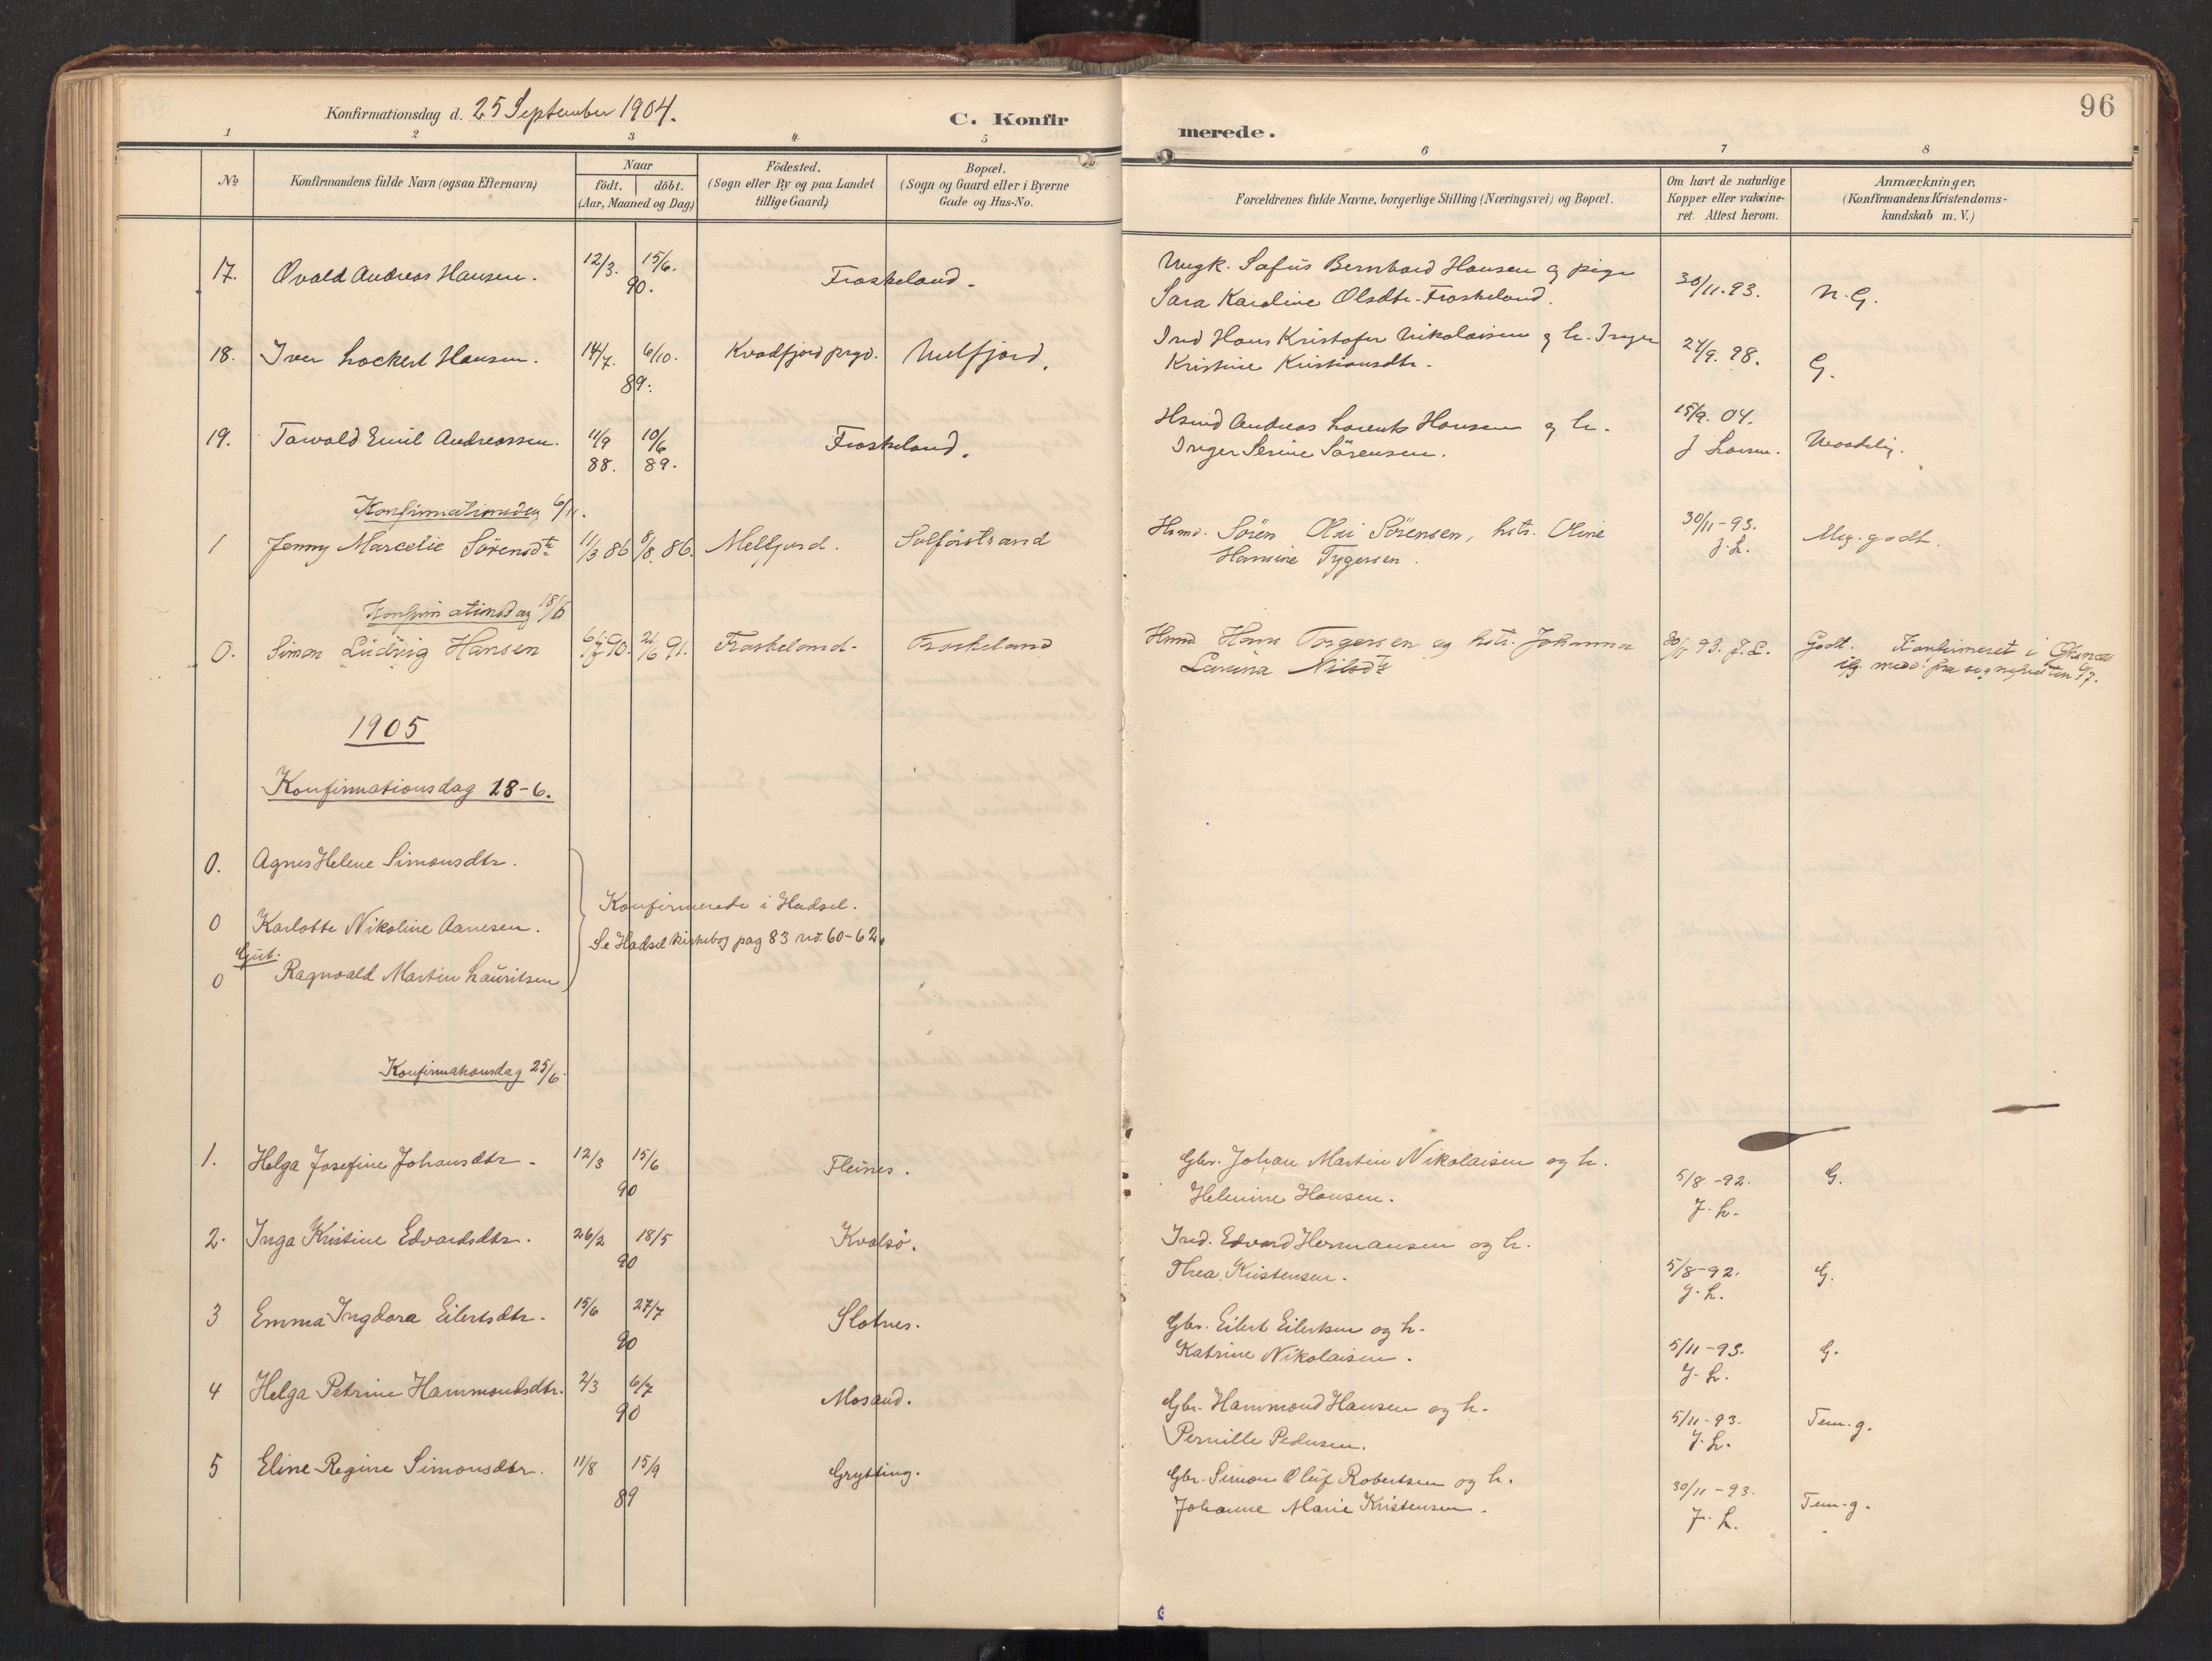 Konfirmationsdag d. 25 September 1904.
C. Konfir
merede.
96
1 2 3 4 5 6 7 8
No
Konfirmandens fulde Navn (ogsaa Efternavn)
Naar
födt. döbt.
(Aar, Maaned og Dag)
Födested.
(Sogn eller By og paa Landet
tillige Gaard)
Bopæl.
(Sogn og Gaard eller i Byerne
Gade og Hus-No.
Forældrenes fulde Navne, borgerlige Stilling (Næringsvei) og Bopæl.
Om havt de naturlige
Kopper eller vakcine-
ret. Attest herom.
Anmærkninger.
(Konfirmandens Kristendoms-
kundskab m. V.)
17. Ovald Andreas Hansen. 12/3. 15/6. 90. Froskeland.
Ungk. Safus Bernhard Hansen og pige
Sara Karoline Olsdtr. Froskeland.
30/11.93. N.G.
18. Iver Lockert Hansen. 14/7. 6/10. 89. Kvædfjord prgd.
Ind Hans Kristofer Nikolaisen og h. Inger
Kristine Kristiansdtr.
24/9. 98. G.
19. Torvald Emil Andreassen. 11/9 88. 10/6 89. Froskeland.
Hsmd Andreas Lorents Hansen og h.
Inger Serine Sörensen.
15/9. 04.
J Larsen.
Konfirmationsdag 6/11.
1 Jenny Marcelie Sörensdtr 11/3 86 8/8. 86. Melfjord.
Hsmd. Sören Olai Sörensen, hstr. Oline
Hansine Tygersen.
30/11-93.
J.L.
Meg. godt.
Konfirmationsdag 18/6
0. Simon Ludvig Hansen 90. 21/6 91. Froskeland. Froskeland
Hsmd Hans Torgersen og hstr. Johanna
Lavina Nilsdtr
30/11 93. J.L.
Godt. Konfirmeret i
1905
Konfirmationsdag 18-6.
0. Agnes Helene Simonsdtr.
0 Karlotte Nikoline Aanesen.
Gut.
0 Ragnvald Martin Lauritsen
Konfirmerede i Hadsel.
Se Hadsel kirkebog pag 83 no. 60-62.
Konfirmationsdag 25/6.
1. Helga Josefine Johansdtr. 12/3 15/6 90 Fleines.
Gbr. Johan Martin Nikolaisen og h.
Helenine Hansen.
5/8-92.
J.L.
G.
2. Inga Kristine Edvardsdtr. 26/2 18/5 90 Kvalsö.
Ind. Edvard Hermansen og h.
Thea Kristensen.
5/8-92.
J.L.
G.
3 Emma Ingdora Eilertsdtr. 15/6 27/7 90 Slotnes.
Gbr. Eilert Eilertsen og h.
Katrine Nikolaisen.
5/11-93.
J.L.
G.
4 Helga Petrine Hammondsdtr. 2/3 6/7 90 Mosand.
Gbr. Hammond Hansen og h.
Pernille Pedersen.
5/11-93.
J.L.
Tem. g.
5 Eline Regine Simonsdtr. 11/8 15/9 89 Grytting.
Gbr. Simon Oluf Robertsen og h.
Johanne Marie Kristensen.
30/11-93.
J.L.
Tem. g.